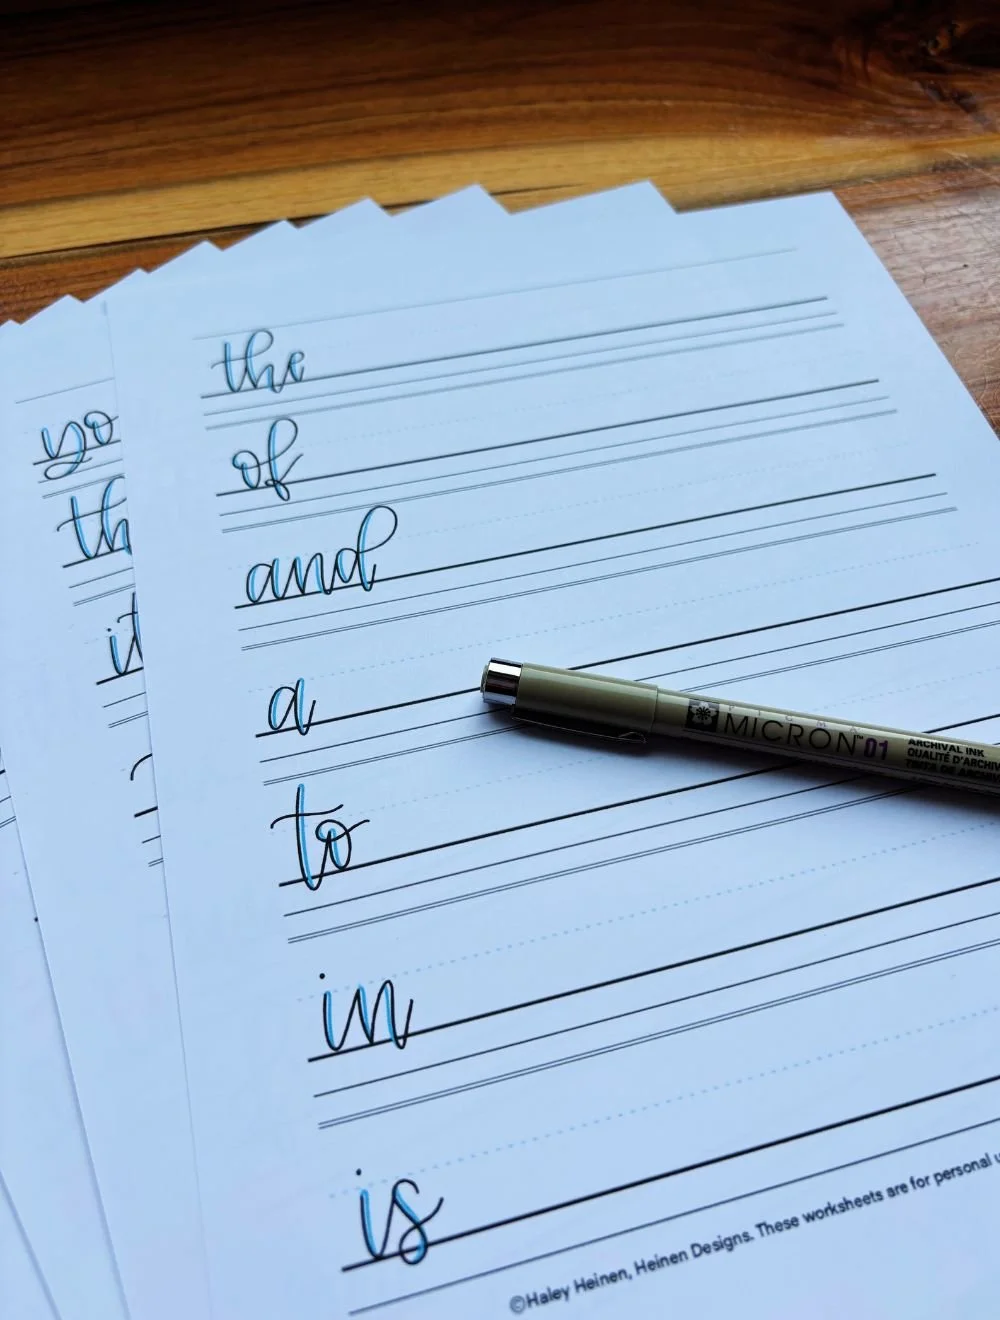 the
of
and
a
to
in
is
yo
th
it
PIGMA
MICRON™ 01
ARCHIVAL INK
QUALITÉ D'ARCHIV
TINTA DE ARCHIV
©Haley Heinen, Heinen Designs. These worksheets are for personal u